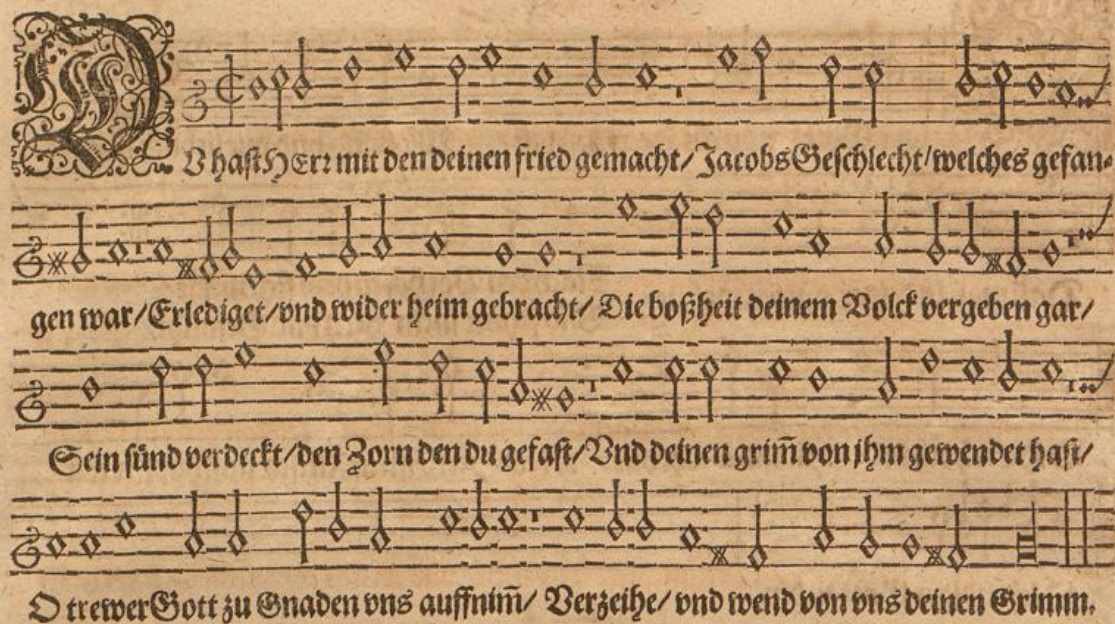 DV hast HErr mit den deinen fried gemacht/ Jacobs Geschlecht/ welches gefan-
gen war/ Erlediget/ vnd wider heim gebracht/ Die boßheit deinem Volck vergeben gar/
Sein sünd verdeckt/ den Zorn den du gefast/ Vnd deinen grim̃ von jhm gewendet hast/
O trewer Gott zu Gnaden vns auffnim̃/ Verzeihe/ vnd wend von vns deinen Grimm.